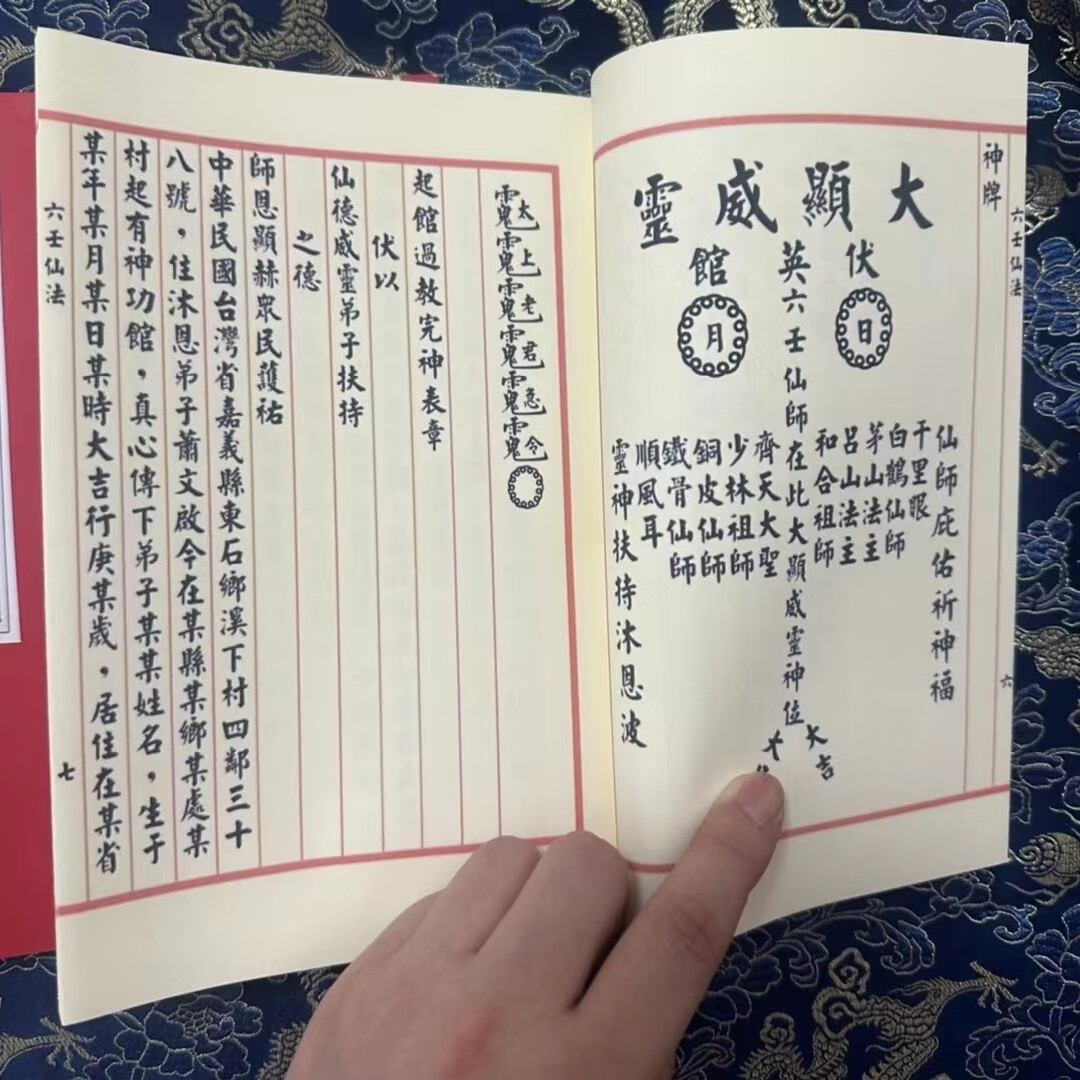 神牌
六壬仙法
六
大顯威靈
伏
日
仙師庇佑祈神福
千里眼
白鶴仙師
茅山法主
呂山法主
和合祖師
英六壬仙師在此大顯威靈神位
大吉
大
館
月
齊天大聖
少林祖師
銅皮仙師
鐵骨仙師
順風耳
靈神扶持沐恩波
太上老君急令
起館過教完神表章
伏以
仙德威靈弟子扶持
之德
師恩顯赫眾民護祐
中華民國台灣省嘉義縣東石鄉溪下村四鄰三十
八號，住沐恩弟子蕭文啟今在某縣某鄉某處某
村起有神功館，真心傳下弟子某某姓名，生于
某年某月某日某時大吉行庚某歲，居住在某省
六壬仙法
七